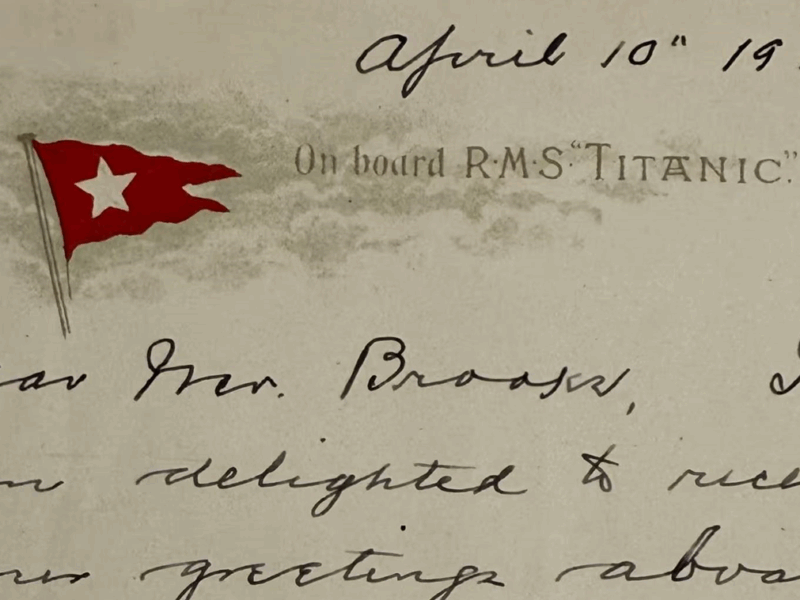 April 10" 19
On board R·M·S·"TITANIC."
ar Mr. Brooks, I
m delighted to rece
our greetings aboa